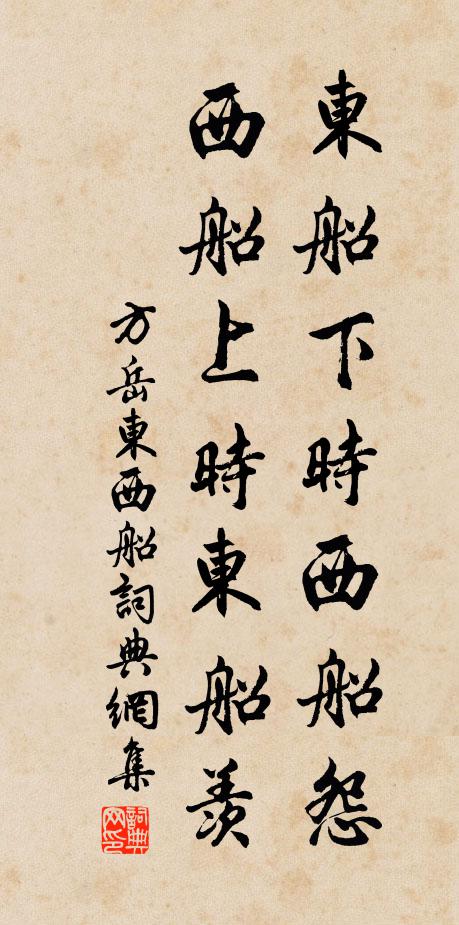 東船下時西船怨
西船上時東船羨
方岳東西船詞典網集
詞典
网印